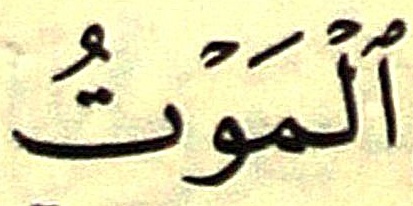 ٱلْمَوْتُ